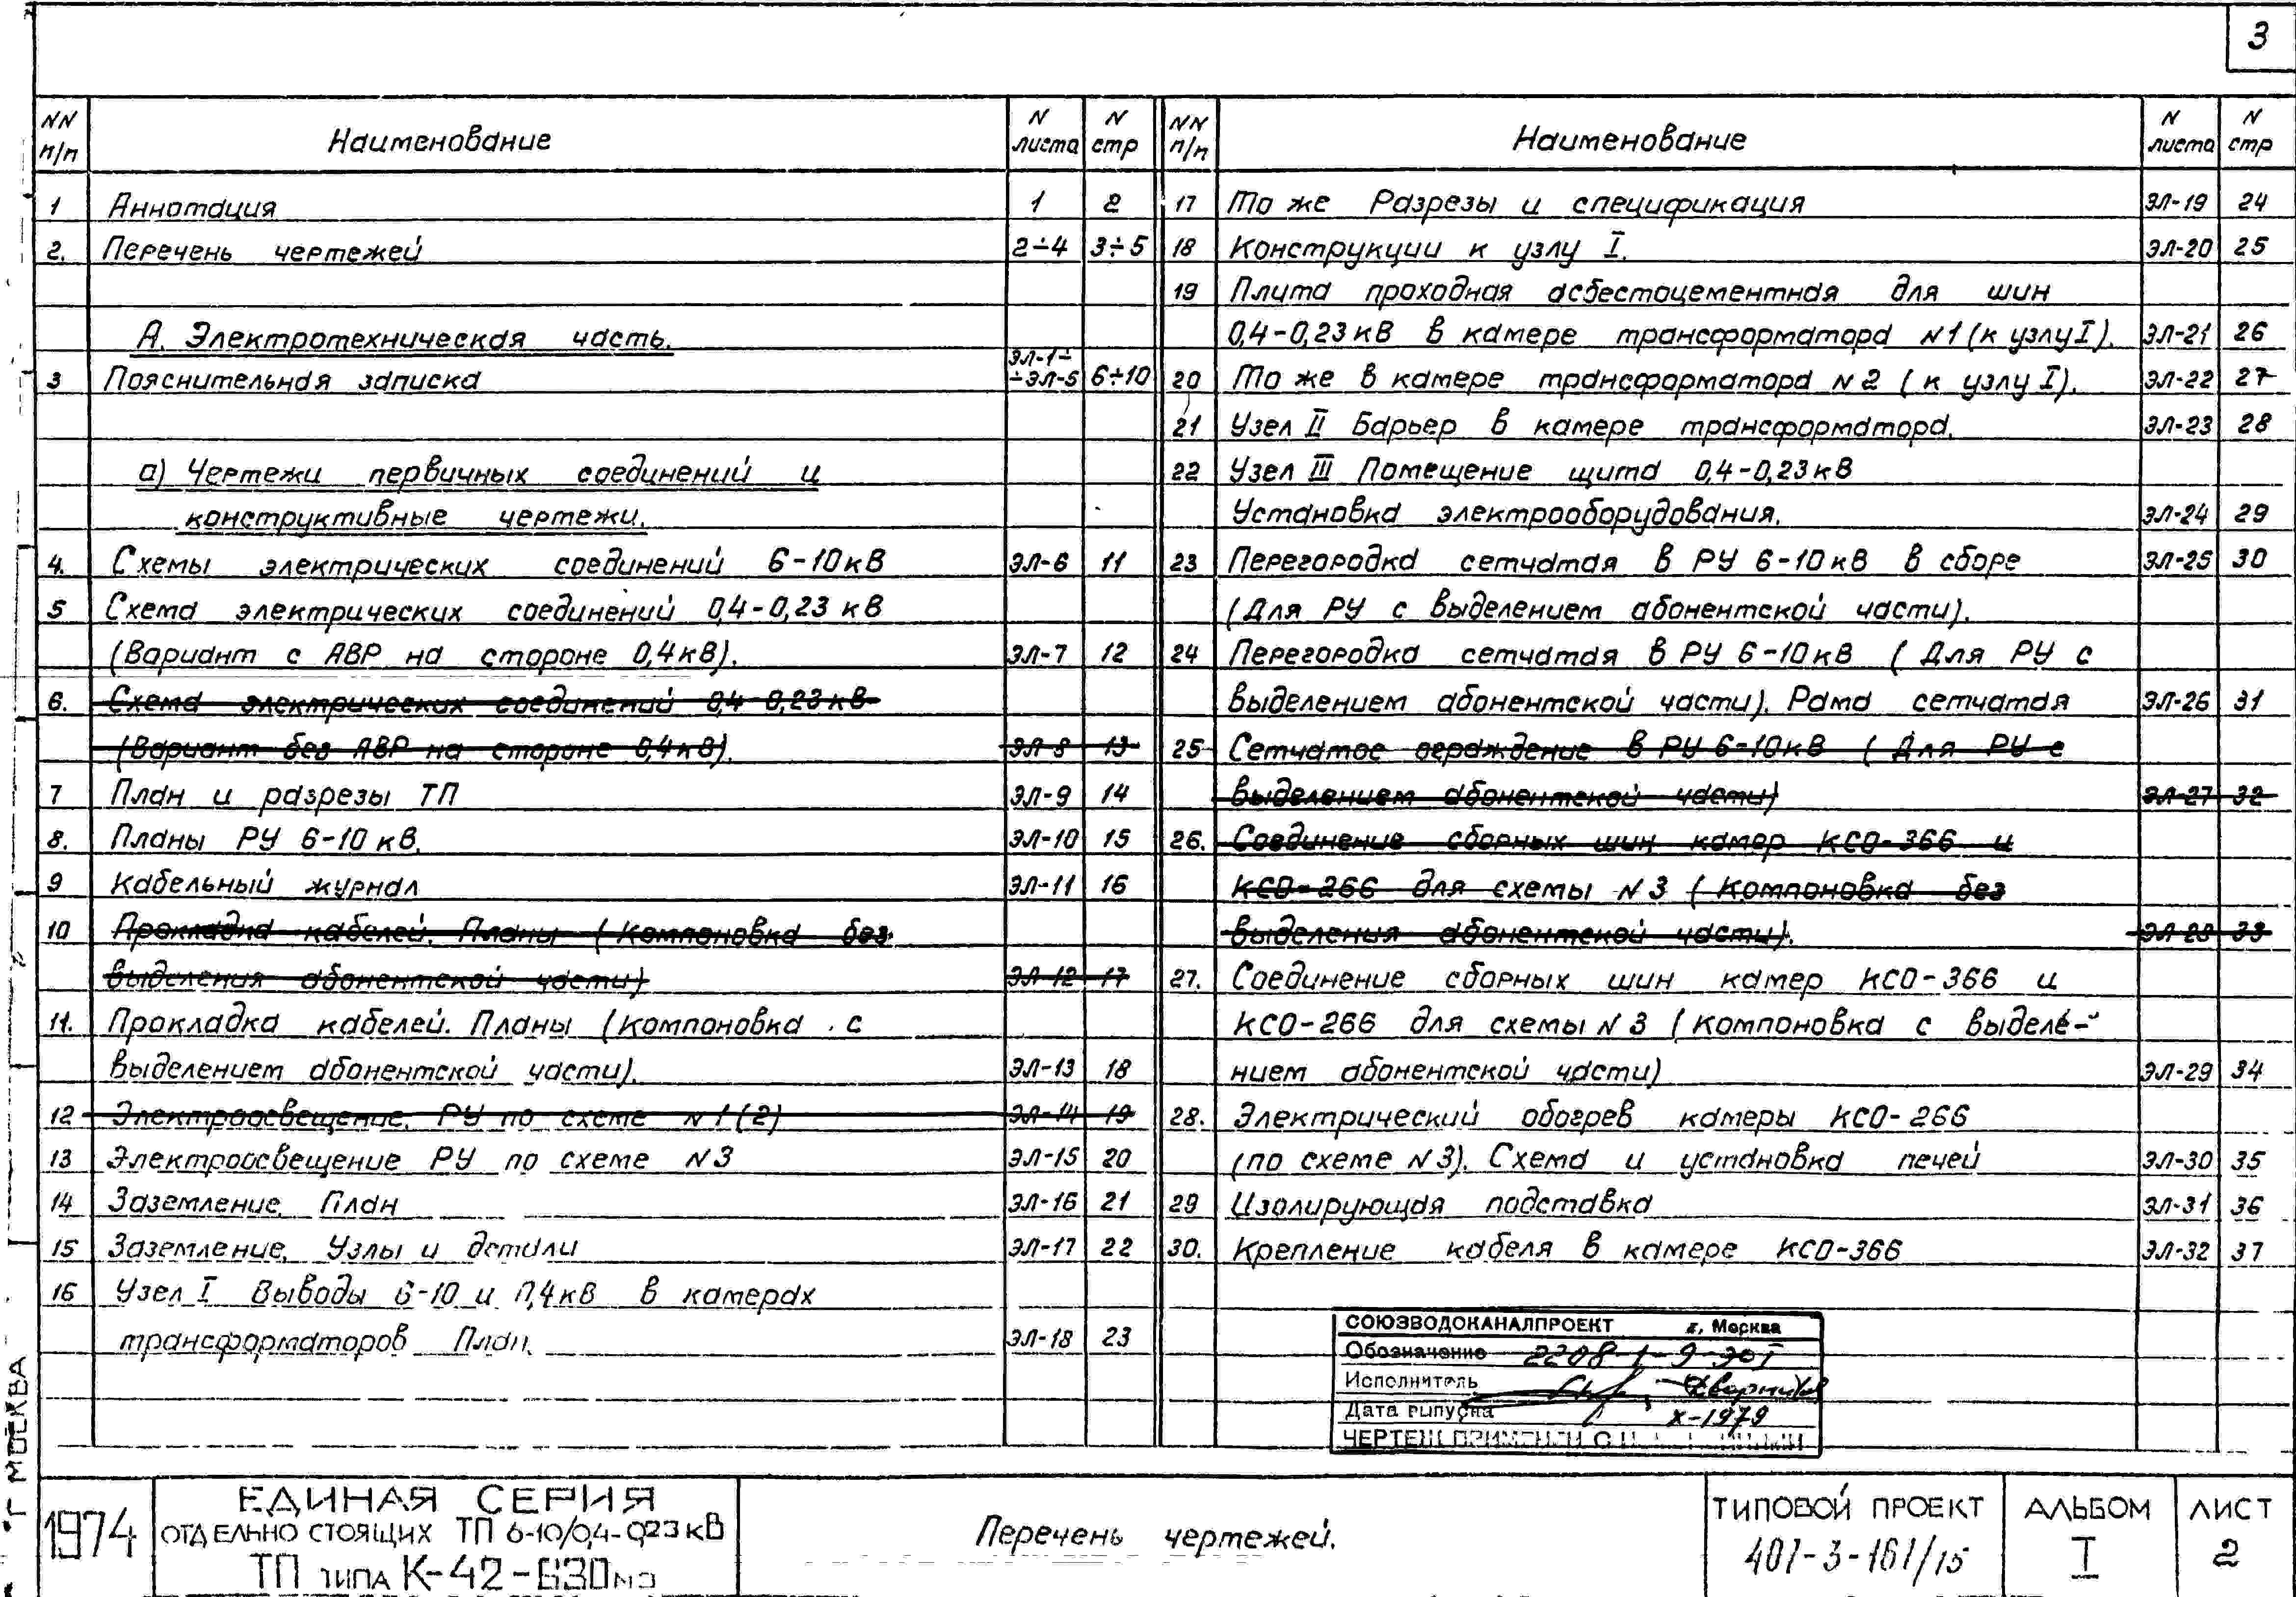 3
NN п/п Наименование N листа N стр
1 Аннотация 1 2
2. Перечень чертежей 2÷4 3÷5
А. Электротехническая часть.
3 Пояснительная записка ЭЛ-1÷ ÷ЭЛ-5 6÷10
а) Чертежи первичных соединений и
конструктивные чертежи.
4. Схемы электрических соединений 6-10кВ ЭЛ-6 11
5 Схема электрических соединений 0,4-0,23 кВ
(Вариант с АВР на стороне 0,4кВ). ЭЛ-7 12
6. Схема электрических соединений 0,4-0,23кВ
(Вариант без АВР на стороне 0,4кВ). ЭЛ-8 13
7 План и разрезы ТП ЭЛ-9 14
8. Планы РУ 6-10 кВ. ЭЛ-10 15
9 Кабельный журнал ЭЛ-11 16
10 Прокладка кабелей. Планы (Компоновка без
выделения абонентской части) ЭЛ-12 17
11. Прокладка кабелей. Планы (Компоновка с
выделением абонентской части). ЭЛ-13 18
12 Электроосвещение. РУ по схеме N1(2) ЭЛ-14 19
13 Электроосвещение РУ по схеме N3 ЭЛ-15 20
14 Заземление. План ЭЛ-16 21
15 Заземление. Узлы и детали ЭЛ-17 22
16 Узел I Выводы 6-10 и 0,4кВ в камерах
трансформаторов План. ЭЛ-18 23
NN п/п Наименование N листа N стр
17 То же Разрезы и спецификация ЭЛ-19 24
18 Конструкции к узлу I. ЭЛ-20 25
19 Плита проходная асбестоцементная для шин
0,4-0,23кВ в камере трансформатора N1 (к узлу I). ЭЛ-21 26
20 То же в камере трансформатора N2 (к узлу I). ЭЛ-22 27
21 Узел II Барьер в камере трансформатора. ЭЛ-23 28
22 Узел III Помещение щита 0,4-0,23кВ
Установка электрооборудования. ЭЛ-24 29
23 Перегородка сетчатая в РУ 6-10кВ в сборе ЭЛ-25 30
(Для РУ с выделением абонентской части).
24 Перегородка сетчатая в РУ 6-10кВ (Для РУ с
выделением абонентской части). Рама сетчатая ЭЛ-26 31
25 Сетчатое ограждение в РУ 6-10кВ (Для РУ с
выделением абонентской части) ЭЛ-27 32
26. Соединение сборных шин камер КСО-366 и
КСО-266 для схемы N3 (Компоновка без
выделения абонентской части). ЭЛ-28 33
27. Соединение сборных шин камер КСО-366 и
КСО-266 для схемы N3 (Компоновка с выделе-
нием абонентской части) ЭЛ-29 34
28. Электрический обогрев камеры КСО-266
(по схеме N3). Схема и установка печей ЭЛ-30 35
29 Изолирующая подставка ЭЛ-31 36
30. Крепление кабеля в камере КСО-366 ЭЛ-32 37
СОЮЗВОДОКАНАЛПРОЕКТ г. Москва
Обозначение 2208-1-9-
Исполнитель
Дата выпуска X-1979
ЧЕРТЕЖ ПРИМЕНЕН
Г МОСКВА
1974
ЕДИНАЯ СЕРИЯ
ОТДЕЛЬНО СТОЯЩИХ ТП 6-10/0,4-0,23кВ
ТП ТИПА К-42-630МЗ
Перечень чертежей.
ТИПОВОЙ ПРОЕКТ
407-3-161/75
АЛЬБОМ
I
ЛИСТ
2